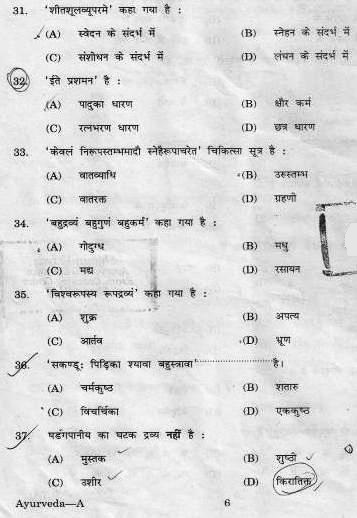 31. 'शीतशूलव्यूपरमे' कहा गया है :
(A) स्वेदन के संदर्भ में (B) स्नेहन के संदर्भ में
(C) संशोधन के संदर्भ में (D) लंघन के संदर्भ में
32. 'ईते प्रशमन' है :
(A) पादुका धारण (B) क्षौर कर्म
(C) रत्नभरण धारण (D) छत्र धारण
33. 'केवलं निरूपस्तम्भमादौ स्नेहैरूपाचरेत' चिकित्सा सूत्र है :
(A) वातव्याधि (B) उरुस्तम्भ
(C) वातरक्त (D) ग्रहणी
34. 'बहुद्रव्यं बहुगुणं बहुकर्म' कहा गया है :
(A) गोदुग्ध (B) मधु
(C) मद्य (D) रसायन
35. 'विश्वरूपस्य रूपद्रव्यं' कहा गया है :
(A) शुक्र (B) अपत्य
(C) आर्तव (D) भ्रूण
36. 'सकण्डू: पिड़िका श्यावा बहुस्त्रावा' ........................ है।
(A) चर्मकुष्ठ (B) शतारु
(C) विचर्चिका (D) एककुष्ठ
37. षडंगपानीय का घटक द्रव्य नहीं है :
(A) मुस्तक (B) शुण्ठी
(C) उशीर (D) किरातिक्त
Ayurveda—A 6